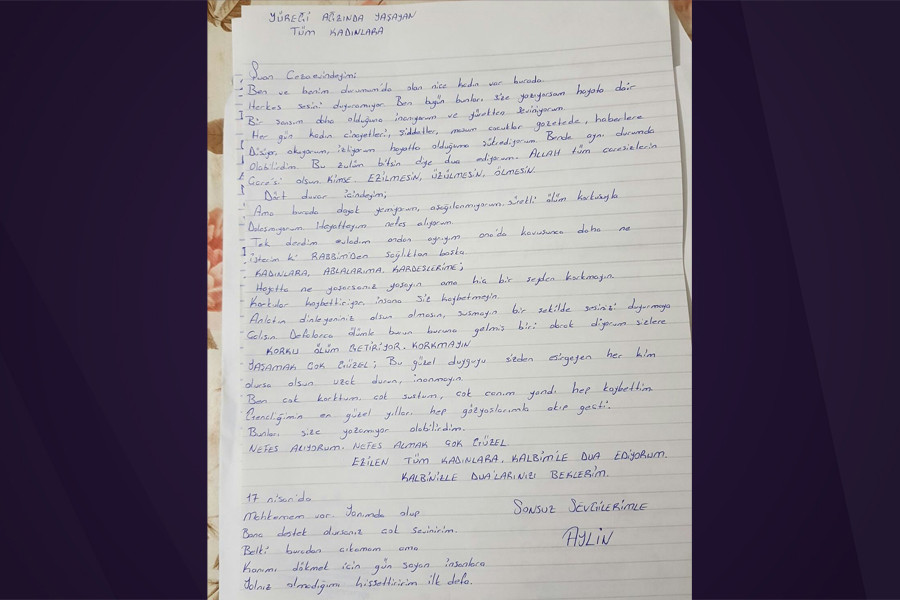 YÜREĞİ AĞZINDA YAŞAYAN
TÜM KADINLARA
Şuan Cezaevindeyim;
Ben ve benim durumumda olan nice kadın var burada.
Herkes sesini duyuramıyor. Ben bugün bunları size yazıyorsam hayata dair
Bir şansım daha olduğuna inanıyorum ve yürekten seviniyorum.
Her gün kadın cinayetleri, şiddetler, masum çocuklar gazetede, haberlere
Düşüyor, okuyorum, izliyorum hayatta olduğuma şükrediyorum. Bende aynı durumda
Olabilirdim. Bu zulüm bitsin diye dua ediyorum. ALLAH tüm çaresizlerin
Çaresi olsun. KİMSE EZİLMESİN, ÜZÜLMESİN, ÖLMESİN.
Dört duvar içindeyim;
Ama burada dayak yemiyorum, aşağılanmıyorum, sürekli ölüm korkusuyla
Dolaşmıyorum. Hayattayım nefes alıyorum.
Tek derdim evladım ondan ayrıyım ona'da kavuşunca daha ne
isterim ki RABBİM'DEN sağlıktan başka.
KADINLARA, ABLALARIMA, KARDEŞLERİME;
Hayatta ne yaşarsanız yaşayın ama hiç bir şeyden korkmayın.
Korkular kaybettiriyor insana siz kaybetmeyin.
Anlatın dinleyeniniz olsun olmasın, susmayın bir şekilde sesinizi duyurmaya
Çalışın. Defalarca ölümle burun buruna gelmiş biri olarak diyorum sizlere
KORKU ÖLÜM GETİRİYOR. KORKMAYIN
YAŞAMAK ÇOK GÜZEL; Bu güzel duyguyu sizden esirgeyen her kim
olursa olsun uzak durun, inanmayın.
Ben çok korktum, çok sustum, çok canım yandı hep kaybettim.
Gençliğimin en güzel yılları hep gözyaşlarımla akıp geçti.
Bunları size yazamıyor olabilirdim.
NEFES ALIYORUM, NEFES ALMAK ÇOK GÜZEL
EZİLEN TÜM KADINLARA, KALBİMLE DUA EDİYORUM.
KALBİNİZLE DUA'LARINIZI BEKLERİM.
17 nisan'da
Mahkemem var. Yanımda olup
Bana destek olursanız çok sevinirim.
Belki buradan çıkamam ama
Kanımı dökmek için gün sayan insanlara
Yalnız olmadığımı hissettiririm ilk defa.
SONSUZ SEVGİLERİMLE
AYLİN